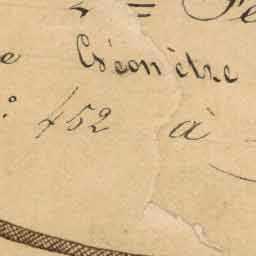 2 = Fe
e Géomètre
: 452 à